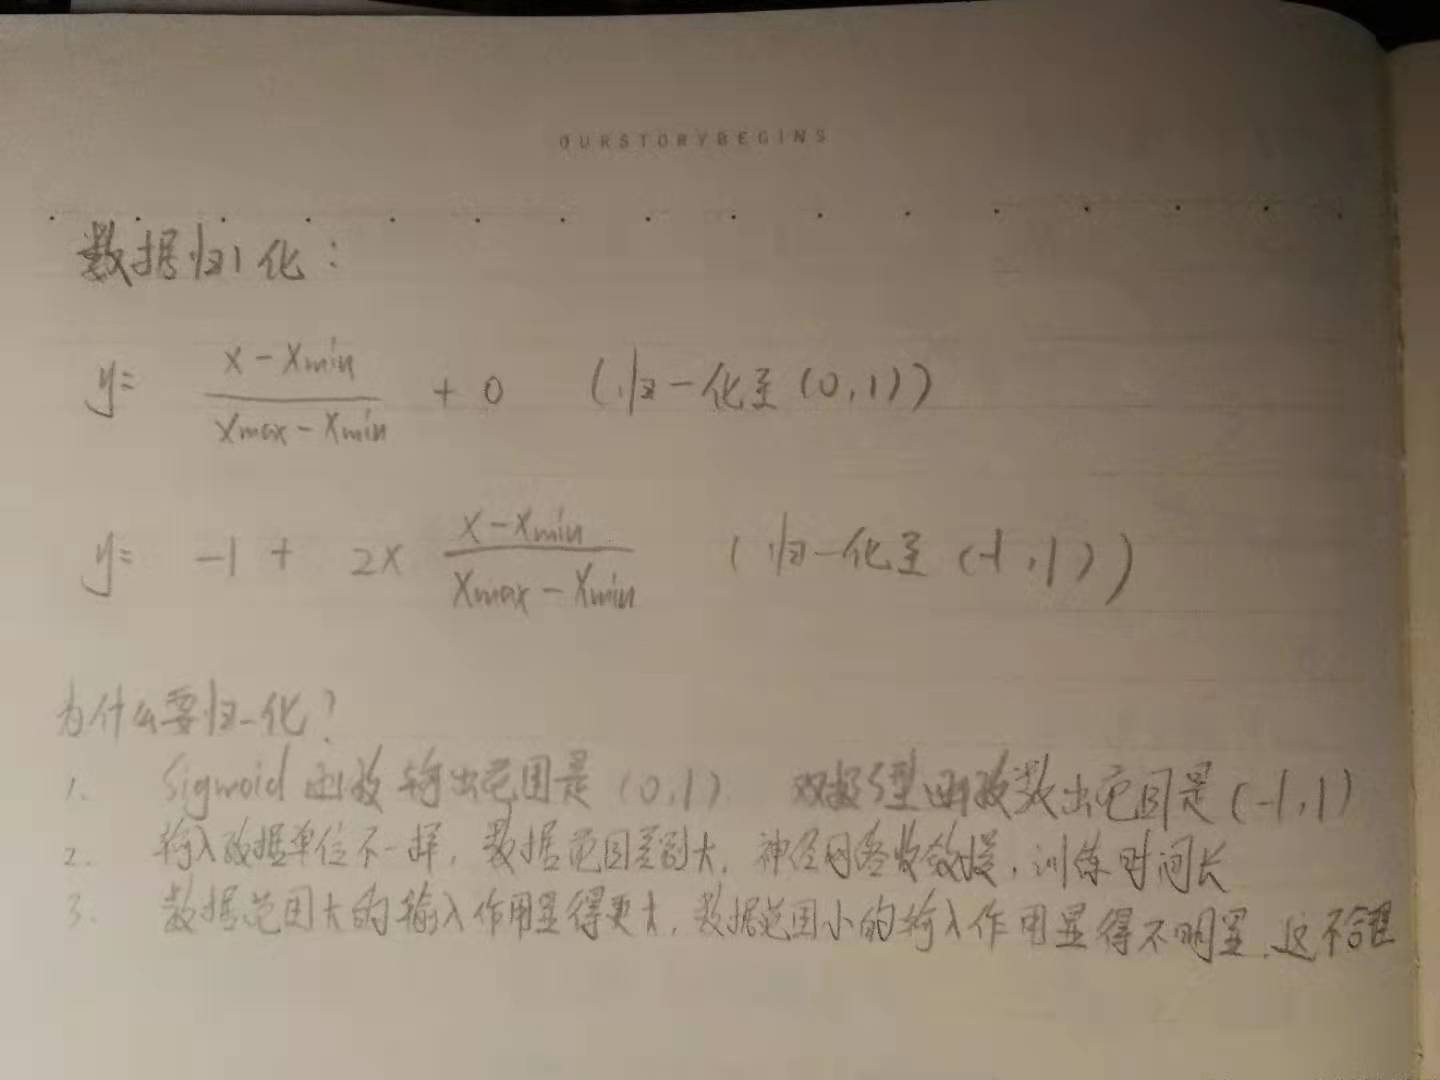 OURSTORYBEGINS
数据归1化：
y= (x-xmin)/(xmax-xmin) + 0 (归一化至(0,1))
y= -1 + 2× (x-xmin)/(xmax-xmin) (归一化至(-1,1))
为什么要归一化？
1. Sigmoid函数输出范围是(0,1) 双极S型函数数出范围是(-1,1)
2. 输入数据单位不一样,数据范围差别大,神经网络收敛慢,训练时间长
3. 数据范围大的输入作用显得更大,数据范围小的输入作用显得不明显.这不合理